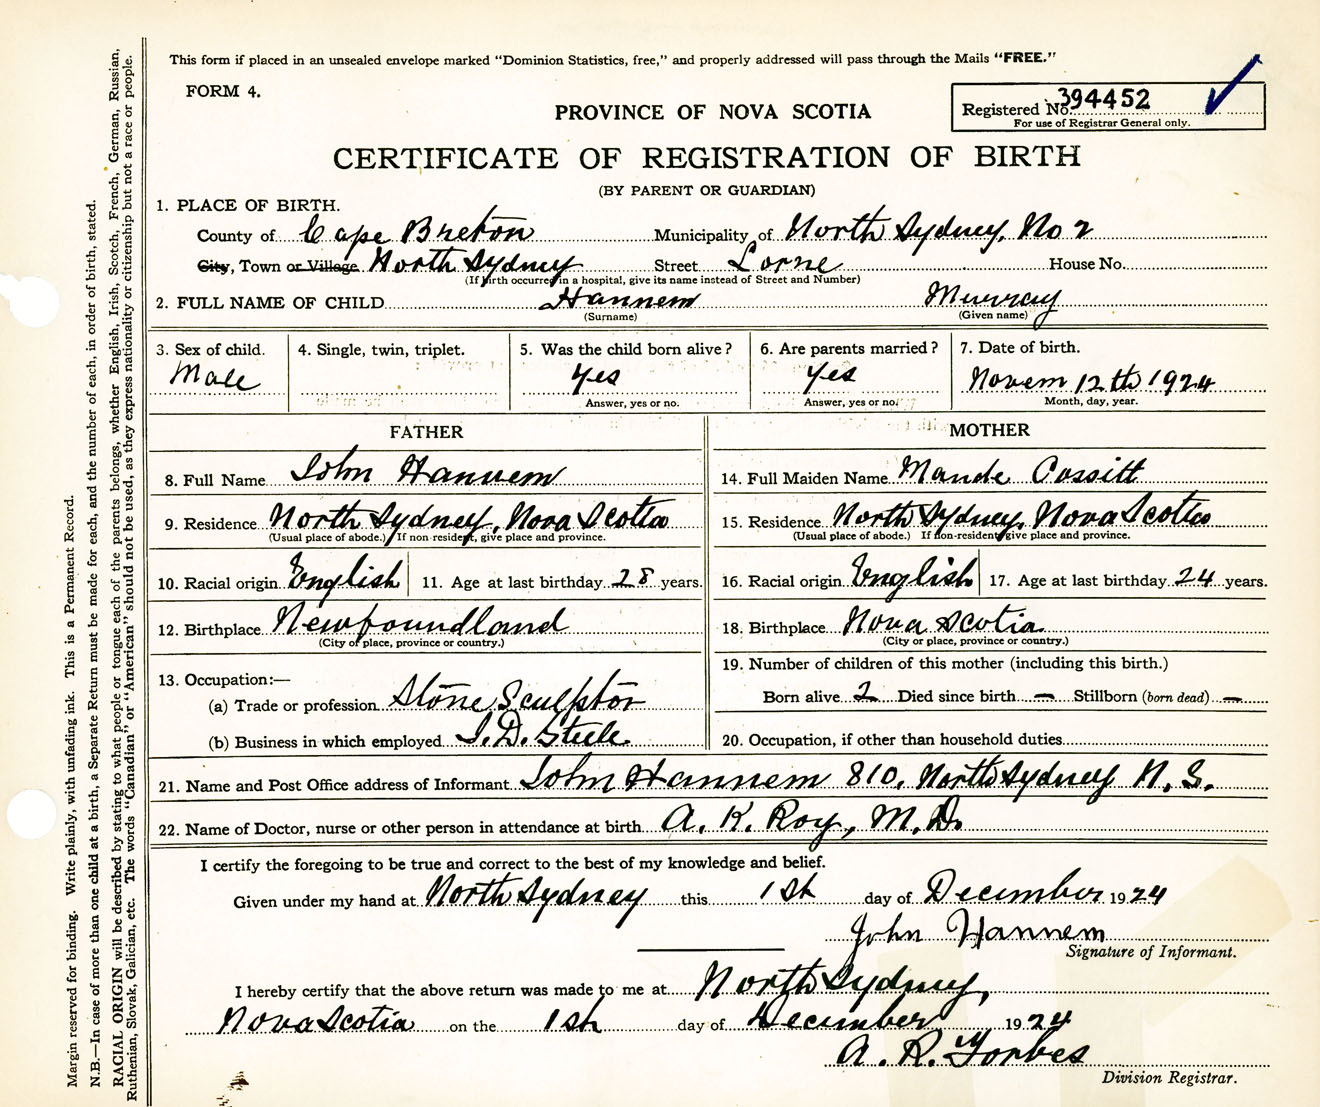 This form if placed in an unsealed envelope marked "Dominion Statistics, free," and properly addressed will pass through the Mails "FREE."
FORM 4.
PROVINCE OF NOVA SCOTIA
Registered No. 394452
For use of Registrar General only.
CERTIFICATE OF REGISTRATION OF BIRTH
(BY PARENT OR GUARDIAN)
1. PLACE OF BIRTH.
County of Cape Breton Municipality of North Sydney, No 2
City, Town or Village North Sydney Street Lorne House No.
(If birth occurred in a hospital, give its name instead of Street and Number)
2. FULL NAME OF CHILD Hannem Murray
(Surname) (Given name)
3. Sex of child. 4. Single, twin, triplet. 5. Was the child born alive? 6. Are parents married? 7. Date of birth.
Male Yes Yes Novem 12th 1924
Answer, yes or no. Answer, yes or no. Month, day, year.
FATHER MOTHER
8. Full Name John Hannem 14. Full Maiden Name Maude Cossitt
9. Residence North Sydney, Nova Scotia 15. Residence North Sydney, Nova Scotia
(Usual place of abode.) If non-resident, give place and province. (Usual place of abode.) If non-resident, give place and province.
10. Racial origin English 11. Age at last birthday 28 years. 16. Racial origin English 17. Age at last birthday 24 years.
12. Birthplace Newfoundland 18. Birthplace Nova Scotia
(City or place, province or country.) (City or place, province or country.)
13. Occupation:— 19. Number of children of this mother (including this birth.)
(a) Trade or profession Stone Sculptor Born alive 2 Died since birth — Stillborn (born dead) —
(b) Business in which employed I. D. Steele 20. Occupation, if other than household duties
21. Name and Post Office address of Informant John Hannem 810, North Sydney N. S.
22. Name of Doctor, nurse or other person in attendance at birth A. K. Roy, M.D.
I certify the foregoing to be true and correct to the best of my knowledge and belief.
Given under my hand at North Sydney this 1st day of December 1924
John Hannem
Signature of Informant.
I hereby certify that the above return was made to me at North Sydney,
Nova Scotia on the 1st day of December 1924
A. R. Forbes
Division Registrar.
Margin reserved for binding. Write plainly, with unfading ink. This is a Permanent Record.
N.B.—In case of more than one child at a birth, a Separate Return must be made for each, and the number of each, in order of birth, stated.
RACIAL ORIGIN will be described by stating to what people or tongue each of the parents belongs, whether English, Irish, Scotch, French, German, Russian,
Ruthenian, Slovak, Galician, etc. The words "Canadian" or "American" should not be used, as they express nationality or citizenship but not a race or people.